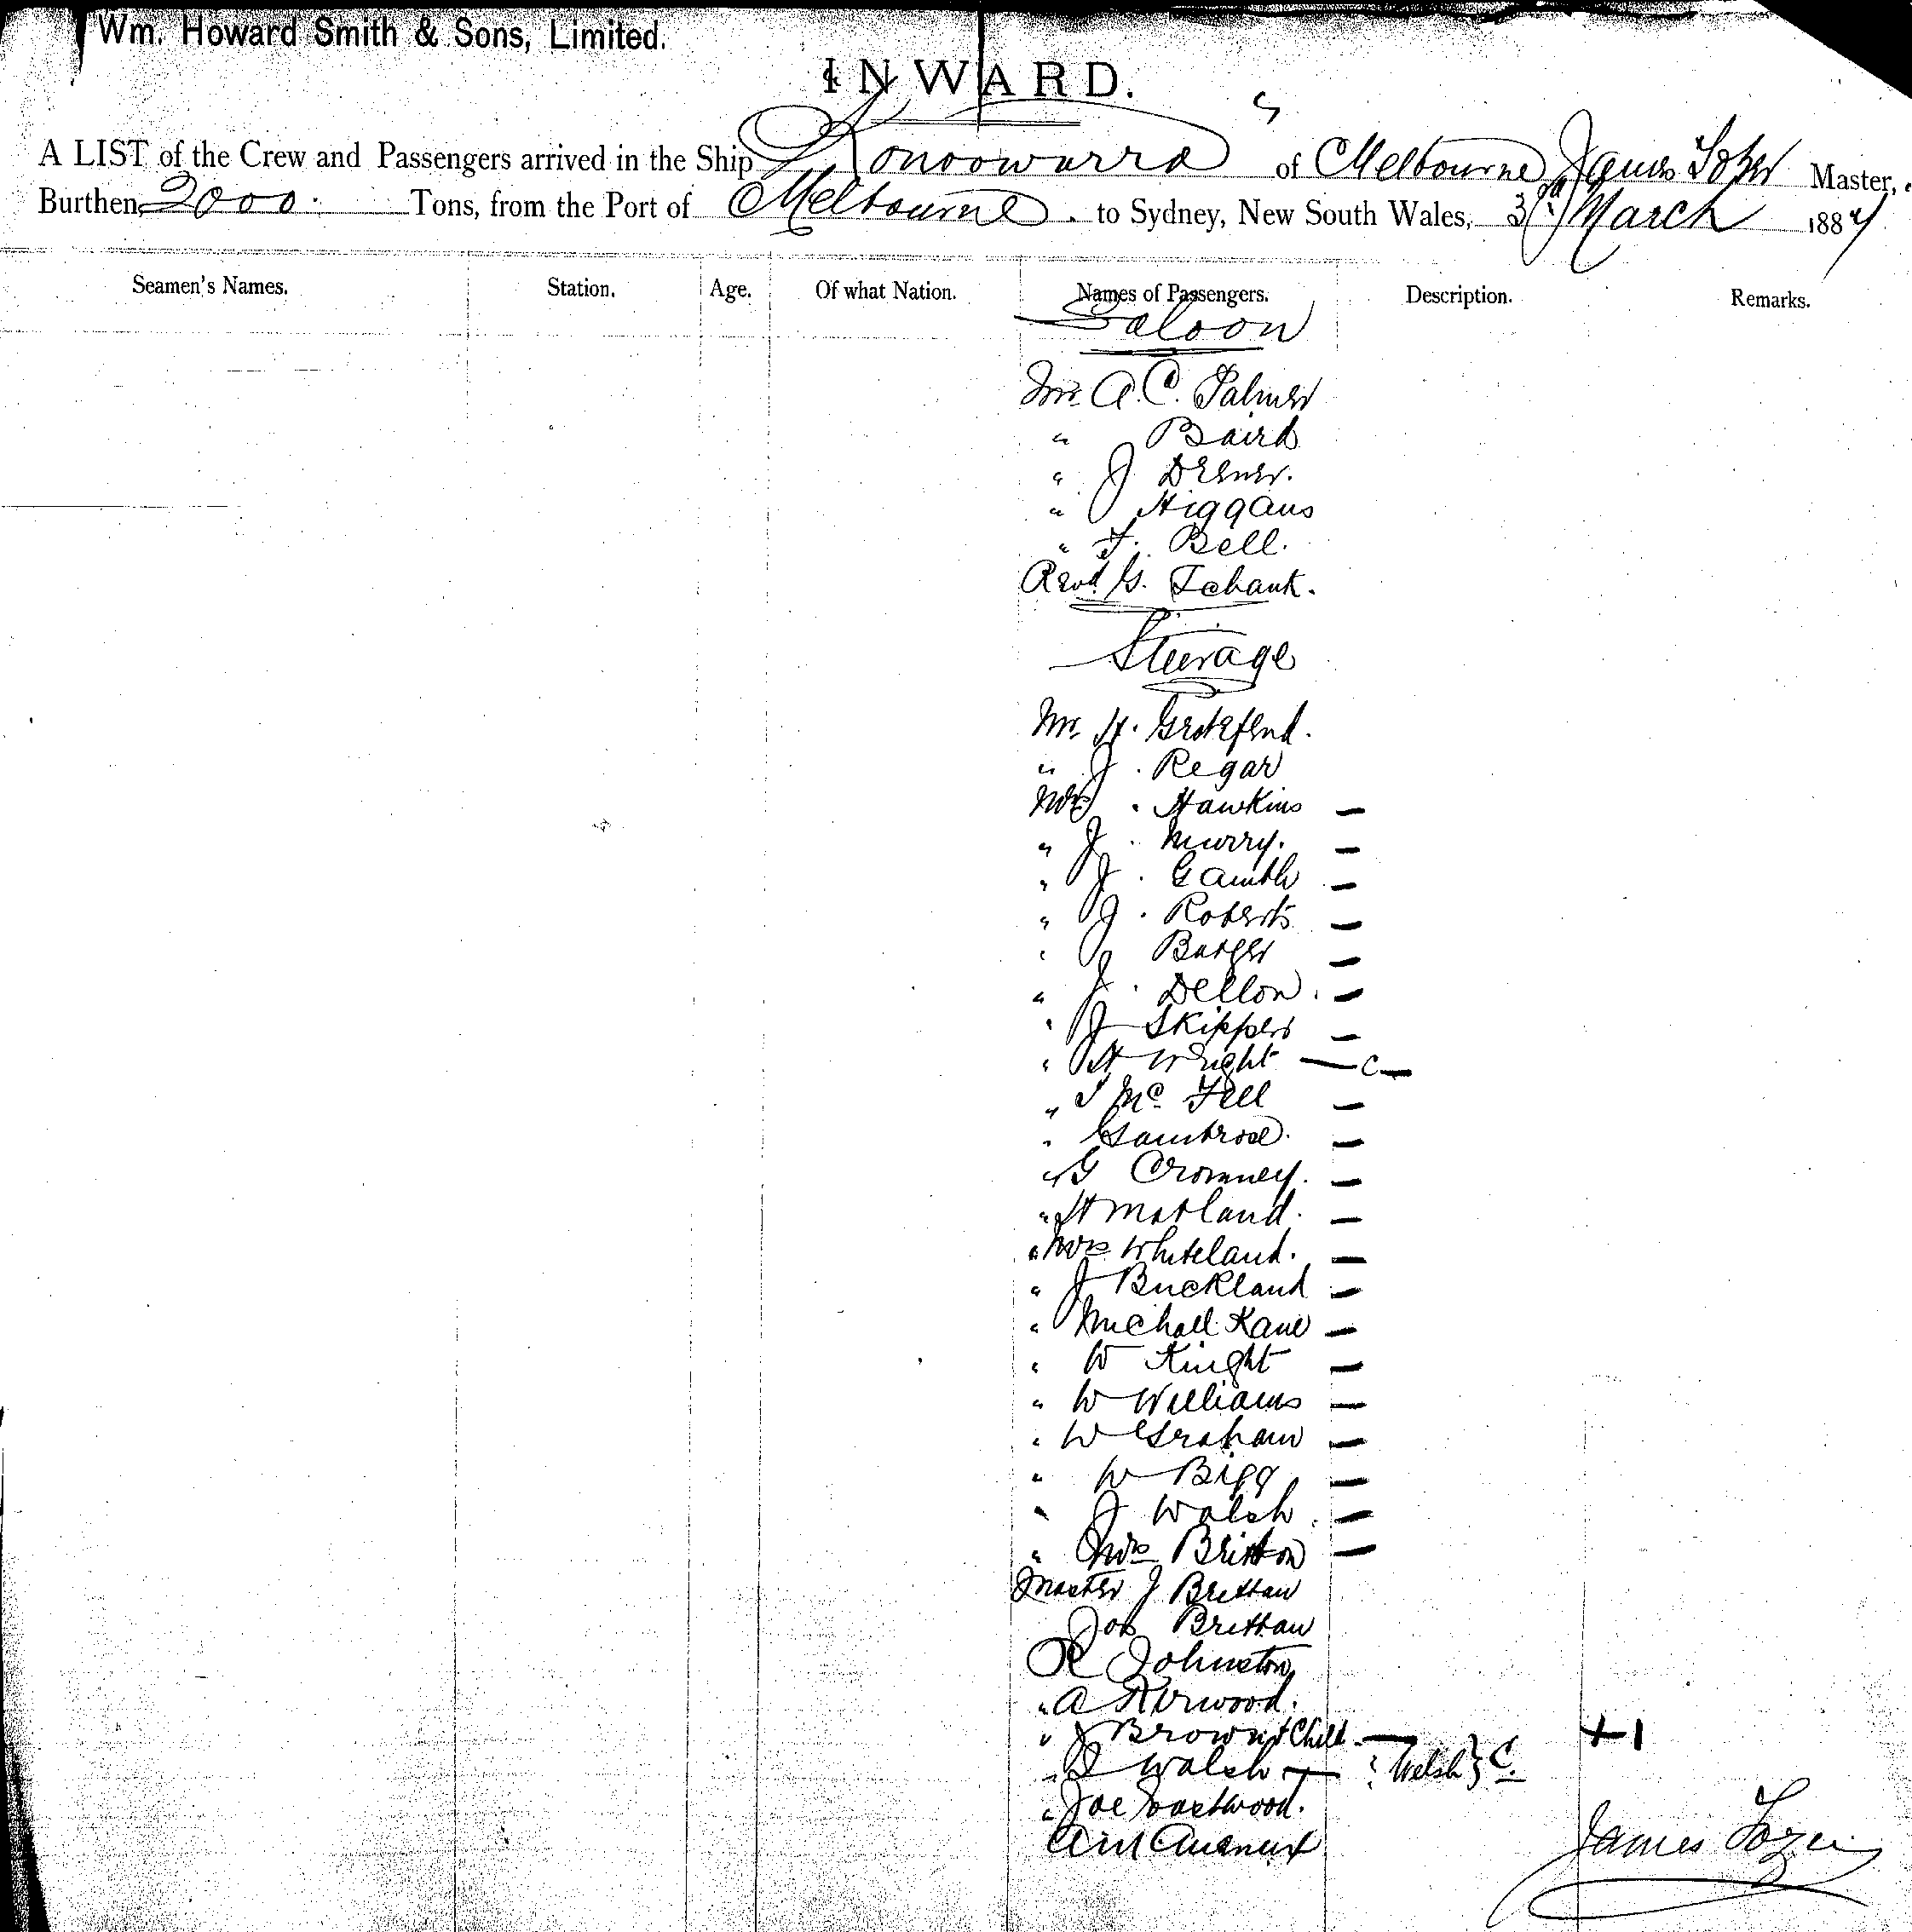 Wm. Howard Smith & Sons, Limited.
INWARD.
A LIST of the Crew and Passengers arrived in the Ship Konoowarra of Melbourne, James Tozer Master,
Burthen 2000 Tons, from the Port of Melbourne to Sydney, New South Wales, March 188
Seamen's Names. Station. Age. Of what Nation. Names of Passengers. Description. Remarks.
Saloon
Mr. A. C. Palmer
" Baird
" J
" Higgans
" F. Bell.
Revd. G.
Steerage
Mr. H. Grotefend.
" J. Regar
Mrs. Hawkins —
" J. Murry. —
" J. Gamble —
" J. Roberts —
" J —
" J. Dellon. —
" J Skippers —
" H Wright — C —
" Mc Fell —
" —
" G Cromney. —
" H Morland. —
" Mrs Whiteland. —
" J Buckland —
" Michall Kane —
" W Knight —
" W Williams —
" W Graham —
" W Bigg —
" J Walsh. —
" Mrs Britton —
Master J Brittan
Jos Brittan
R Johnston
" A Kirwood.
" J Brown & Child — + 1
" Walsh — : Welsh } C.
" Joe Eastwood.
James Tozer